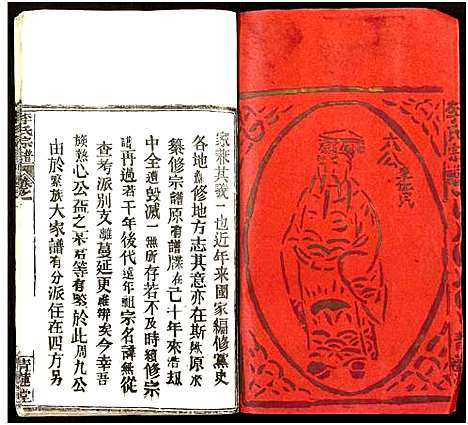 李氏宗
六公
李氏宗譜
卷之一
青蓮堂
家乘其義一也近年來國家編修黨史
各地縣修地方志其意亦在斯歟原
纂修宗譜原有譜牒在已十年來浩劫
中全遭毀滅一無所存若不及時續修宗
譜再過若干年後代遠年祖宗名諱無從
查考派別支離蔓延更難辨矣今幸吾
族熱心公益之某君等有鑒於此周九公
由於繁族大家譜有分派住在四方另